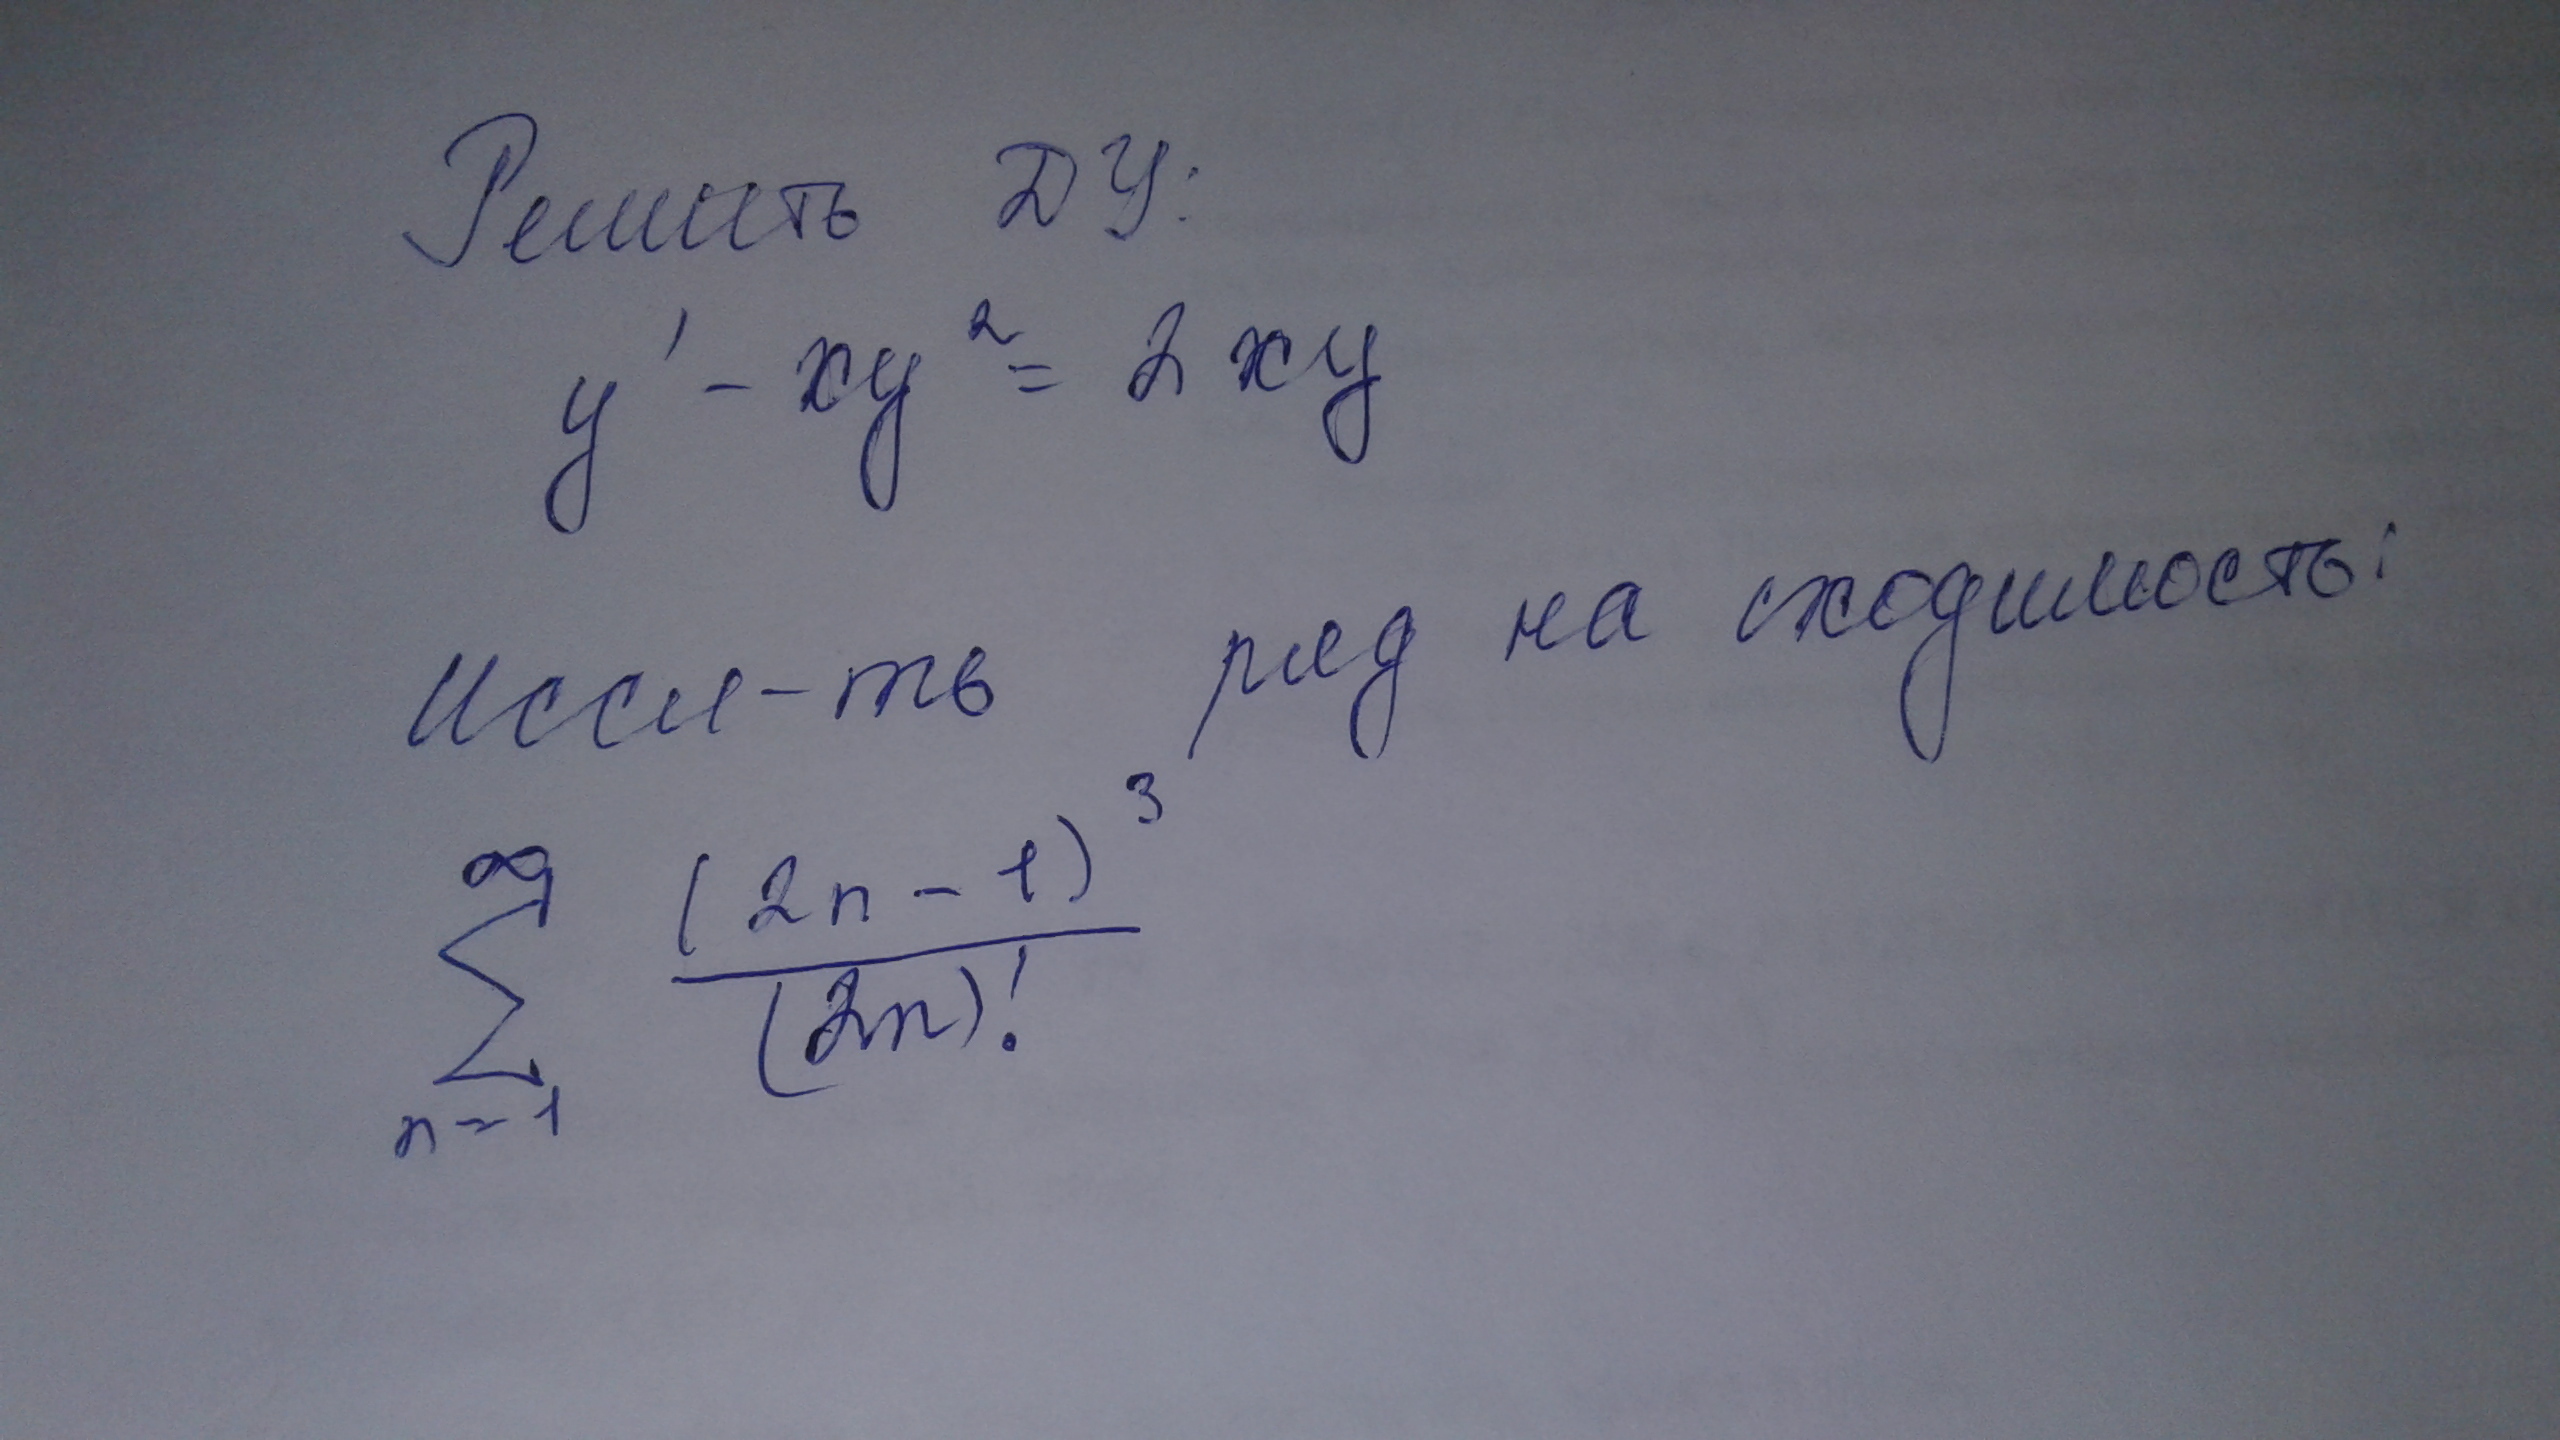 Решить ДУ:
y' - xy² = 2xy
Иссл-ть ряд на сходимость:
∑_{n=1}^{∞} (2n-1)³/(2n)!